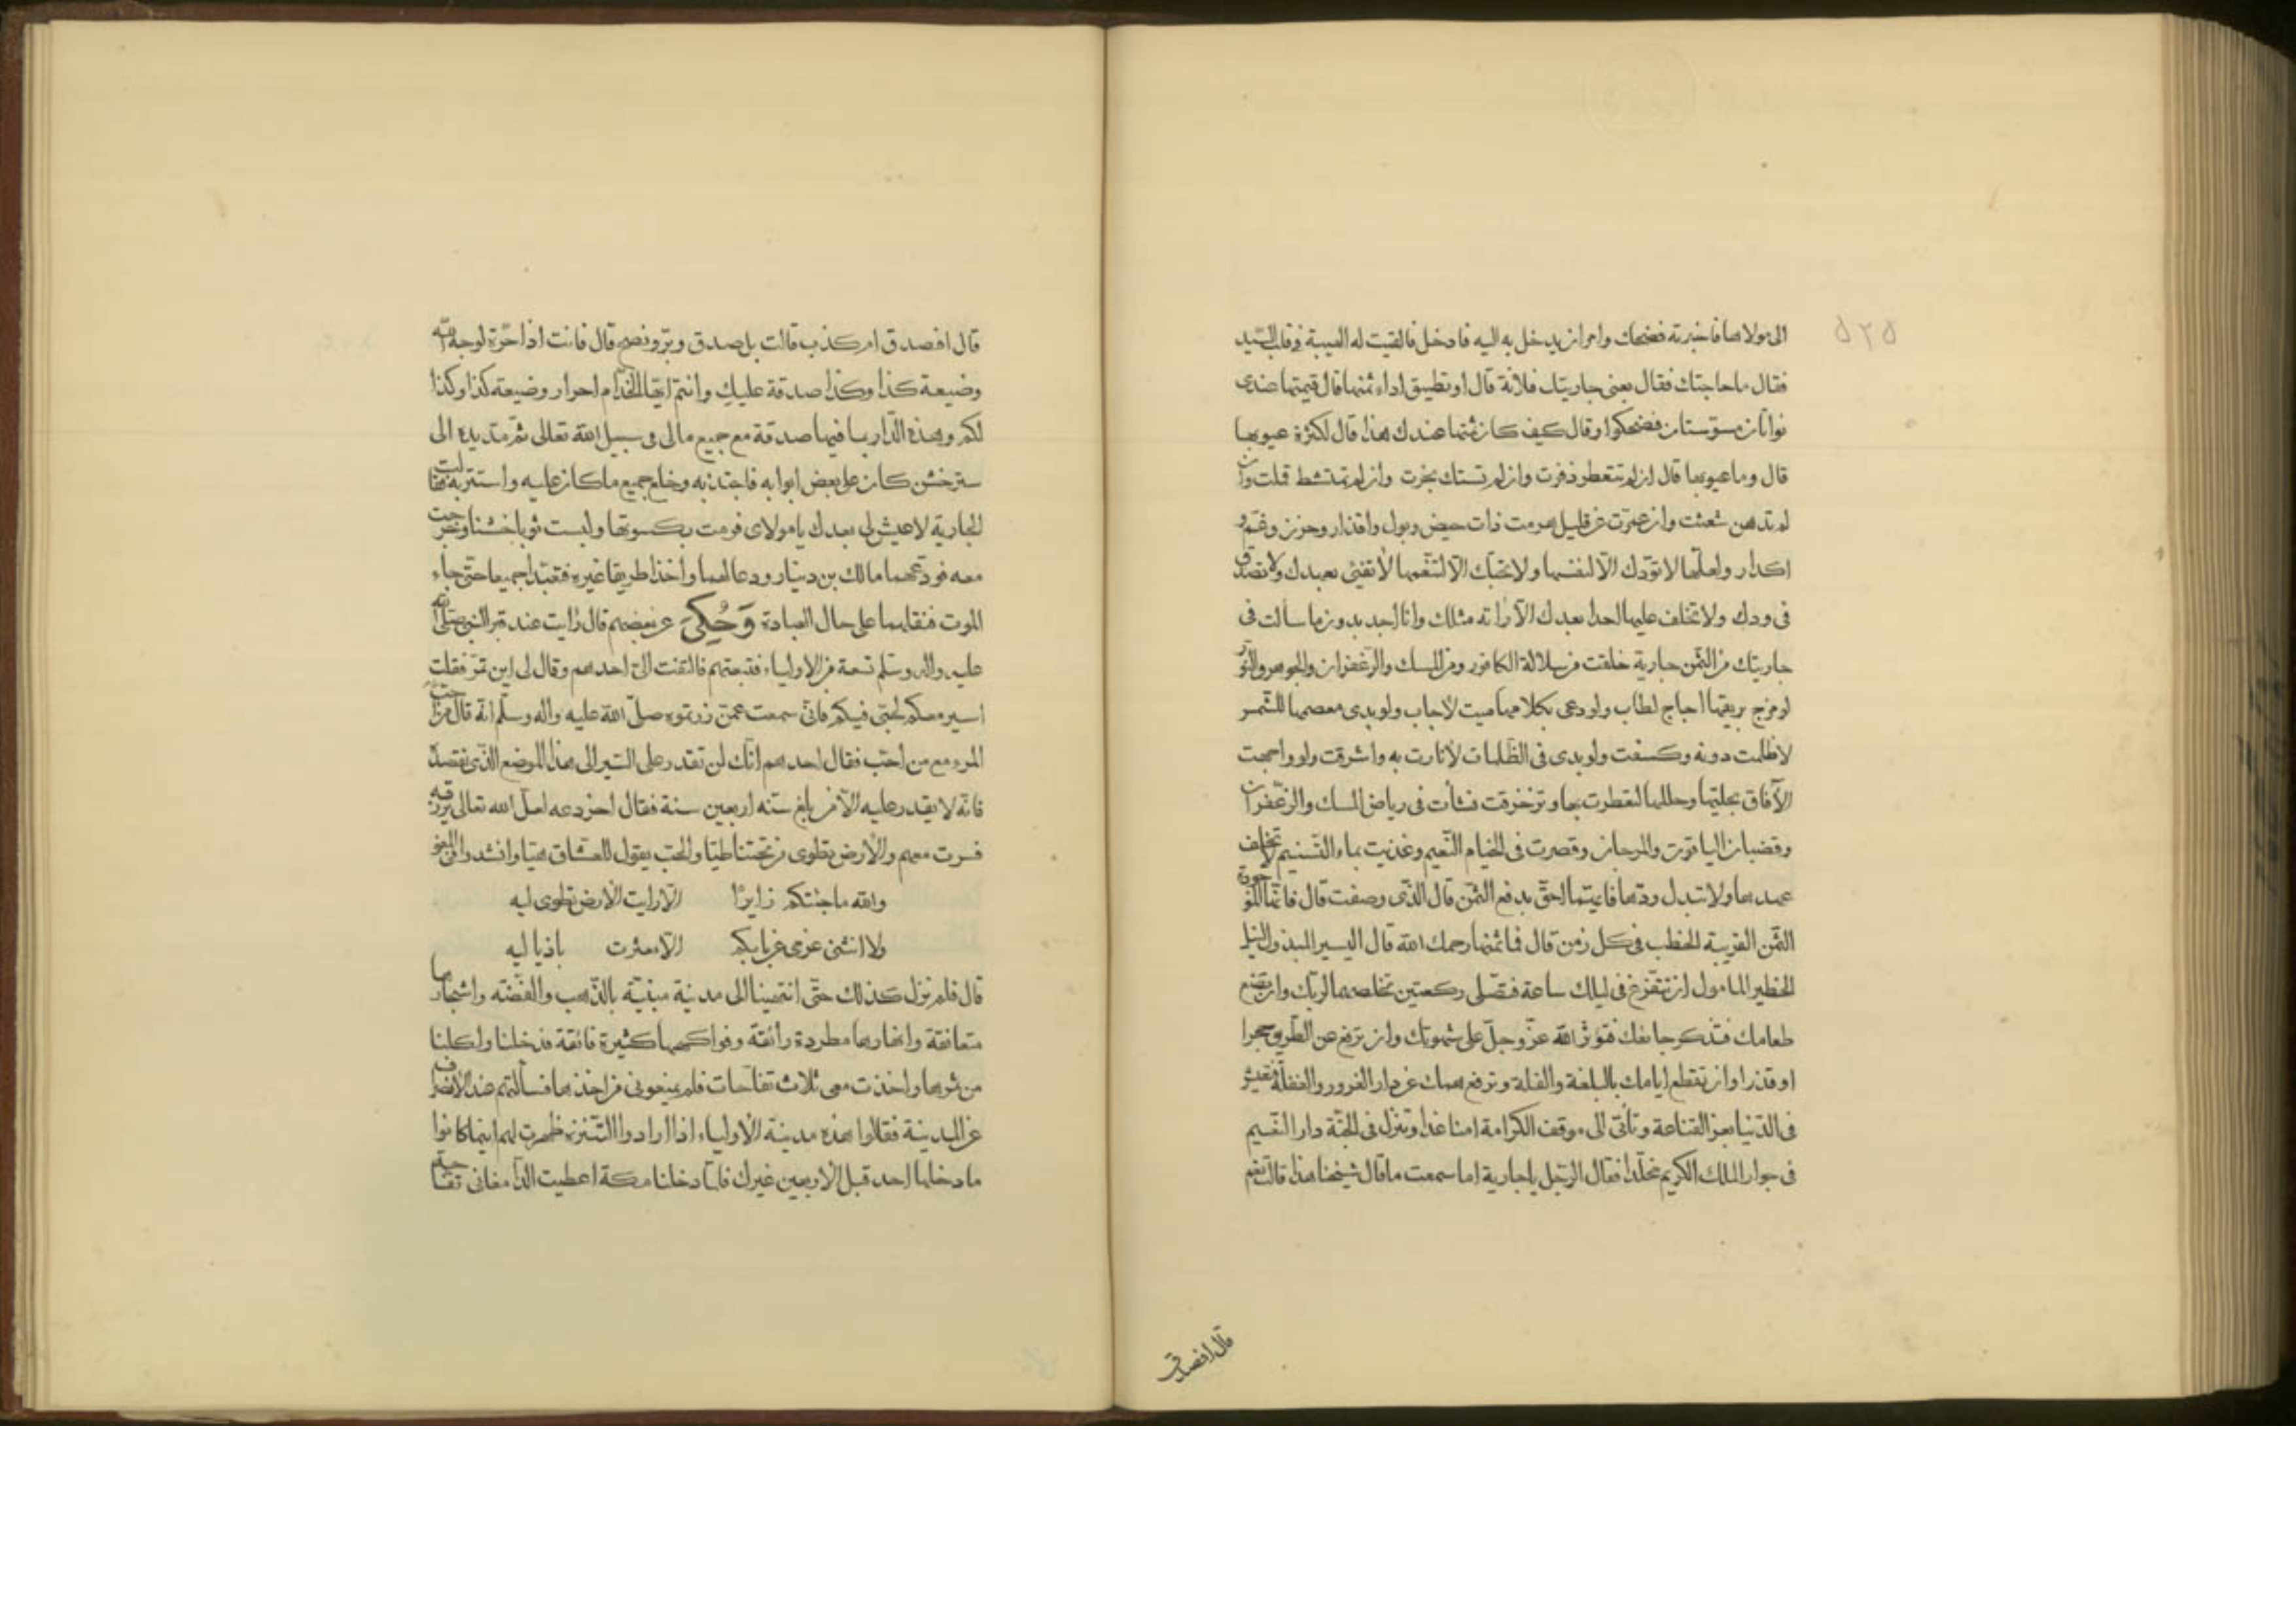 الى مولاها فاخبرته فضحك وامر ان يدخل به اليه فادخل فالقيت له الهيبة فى قلب السّيد
فقال ما حاجتك فقال بعنى جاريتك فلانة قال او تطيق اداء ثمنها قال قيمتها عندى
نواتان مسوّستان فضحكوا وقال كيف كان ثمنها عندك هذا قال لكثرة عيوبها
قال وما عيوبها قال ان لم تتعطر ذفرت وان لم تستك بخرت وان لم تمتشط قملت وان
لم تدهن شعثت وان عمرت عن قليل هرمت ذات حيض وبول واقذار وحزن وغمّ و
اكدار ولعلّها لا تودّك الّا لنفسها ولا تحبّك الّا لتنعّمها لا تفى بعهدك ولا تصدق
فى ودك ولا يخلف عليها احد بعدك الّا راته مثلك وانا اجد بدون ما سالت فى
جاريتك من الثّمن جارية خلقت من سلالة الكافور ومن المسك والزّعفران والجوهر والنّور
لو مزج بريقها اجاج لطاب ولو دعى بكلامها ميت لاجاب ولو بدى معصمها للشّمس
لاظلمت دونه وكسفت ولو بدى فى الظّلمات لانارت به واشرقت ولو واجهت
الآفاق بحليّها وحللها لتعطرت بها وتزخرفت نشأت فى رياض المسك والزّعفران
وقضبان الياقوت والمرجان وقصرت فى الخيام النّعيم وغذيت بماء التّسنيم لا تخلف
عهدها ولا تتبدل ودّها فايّتهما احقّ بدفع الثّمن قال الّذى وصفت قال فانّها الموجودة
الثّمن القريبة الخطب فى كل زمن قال فما ثمنها رحمك الله قال اليسير المبذول لنيل
الخطير المامول ان تتفرّغ فى ليلك ساعة فتصّلى ركعتين تخلصهما لربّك وان تضع
طعامك فتذكر جائعك فتؤثر الله عزّ وجلّ على شهوتك وان ترفع عن الطّريق حجرا
او قذرا وان تقطع ايامك بالبلغة والقلة وترفع همك عن دار الغرور والغفلة فتعيش
فى الدّنيا بعز القناعة وتأتى الى موقف الكرامة امنا غدا وتنزل فى الجنّة دار النّعيم
فى جوار الملك الكريم مخلّدا فقال الرّجل يا جارية اما سمعت ما قال شيخنا هذا قالت نعم
قال افصدق
قال افصدق ام كذب قالت بل صدق وبرّ ونصح قال فانت اذا حرّة لوجه الله
وضيعة كذا وكذا صدقة عليك وانتم ايّها الخدّام احرار وضيعة كذا وكذا
لكم وهذه الدّار بما فيها صدقة مع جميع مالى فى سبيل الله تعالى ثمّ مدّ يده الى
ستر خشن كان على بعض ابوابه فاجتذبه وخلع جميع ما كان عليه واستتر به فقالت
الجارية لا عيش لى بعدك يا مولاى فرمت بكسوتها ولبست ثوبا خشنا وخرجت
معه فودّعهما مالك بن دينار ودعا لهما واخذا طريقا غيره فتعبّدا جميعا حتى جاء
الموت فنقلهما على حال العبادة وَحُكِىَ عن بعضهم قال رايت عند قبر النّبى صلى الله
عليه واله وسلم تسعة من الاولياء فتبعتهم فالتفت الىّ احدهم وقال لى اين تمرّ فقلت
اسير معكم لحبّى فيكم فانّى سمعت عمّن زرتموه صلّى الله عليه واله وسلّم انّه قال
المرء مع من احبّ فقال احدهم انّك لن تقدر على السّير الى هذا الموضع الذّى نقصده
فانّه لا يقدر عليه الّا من بلغ سنّه اربعين سنة فقال اخر دعه لعلّ الله تعالى يرزقه
فسرت معهم والارض تطوى من تحتنا طيّا والحبّ يقول للعشّاق هيّا وانشد
والله ما جئتكم زايرًا الّا رايت الارض تطوى ليه
ولا انثنى عزمى عن بابكم الّا عثرت باذياليه
قال فلم نزل كذلك حتّى انتهينا الى مدينة مبنيّة بالذّهب والفضّه واشجارها
متعانقة وانهارها مطردة رائقة وفواكهها كثيرة فائقة فدخلنا واكلنا
من ثمرها واخذت معى ثلاث تفّاحات فلم يمنعونى من اخذها فسألتهم عند الانصراف
عن المدينة فقالوا هذه مدينة الاولياء اذا ارادوا التّنزه ظهرت لهم اينما كانوا
ما دخلها احد قبل الاربعين غيرك فلمّا دخلنا مكة اعطيت الدّامغانى تفّاحة